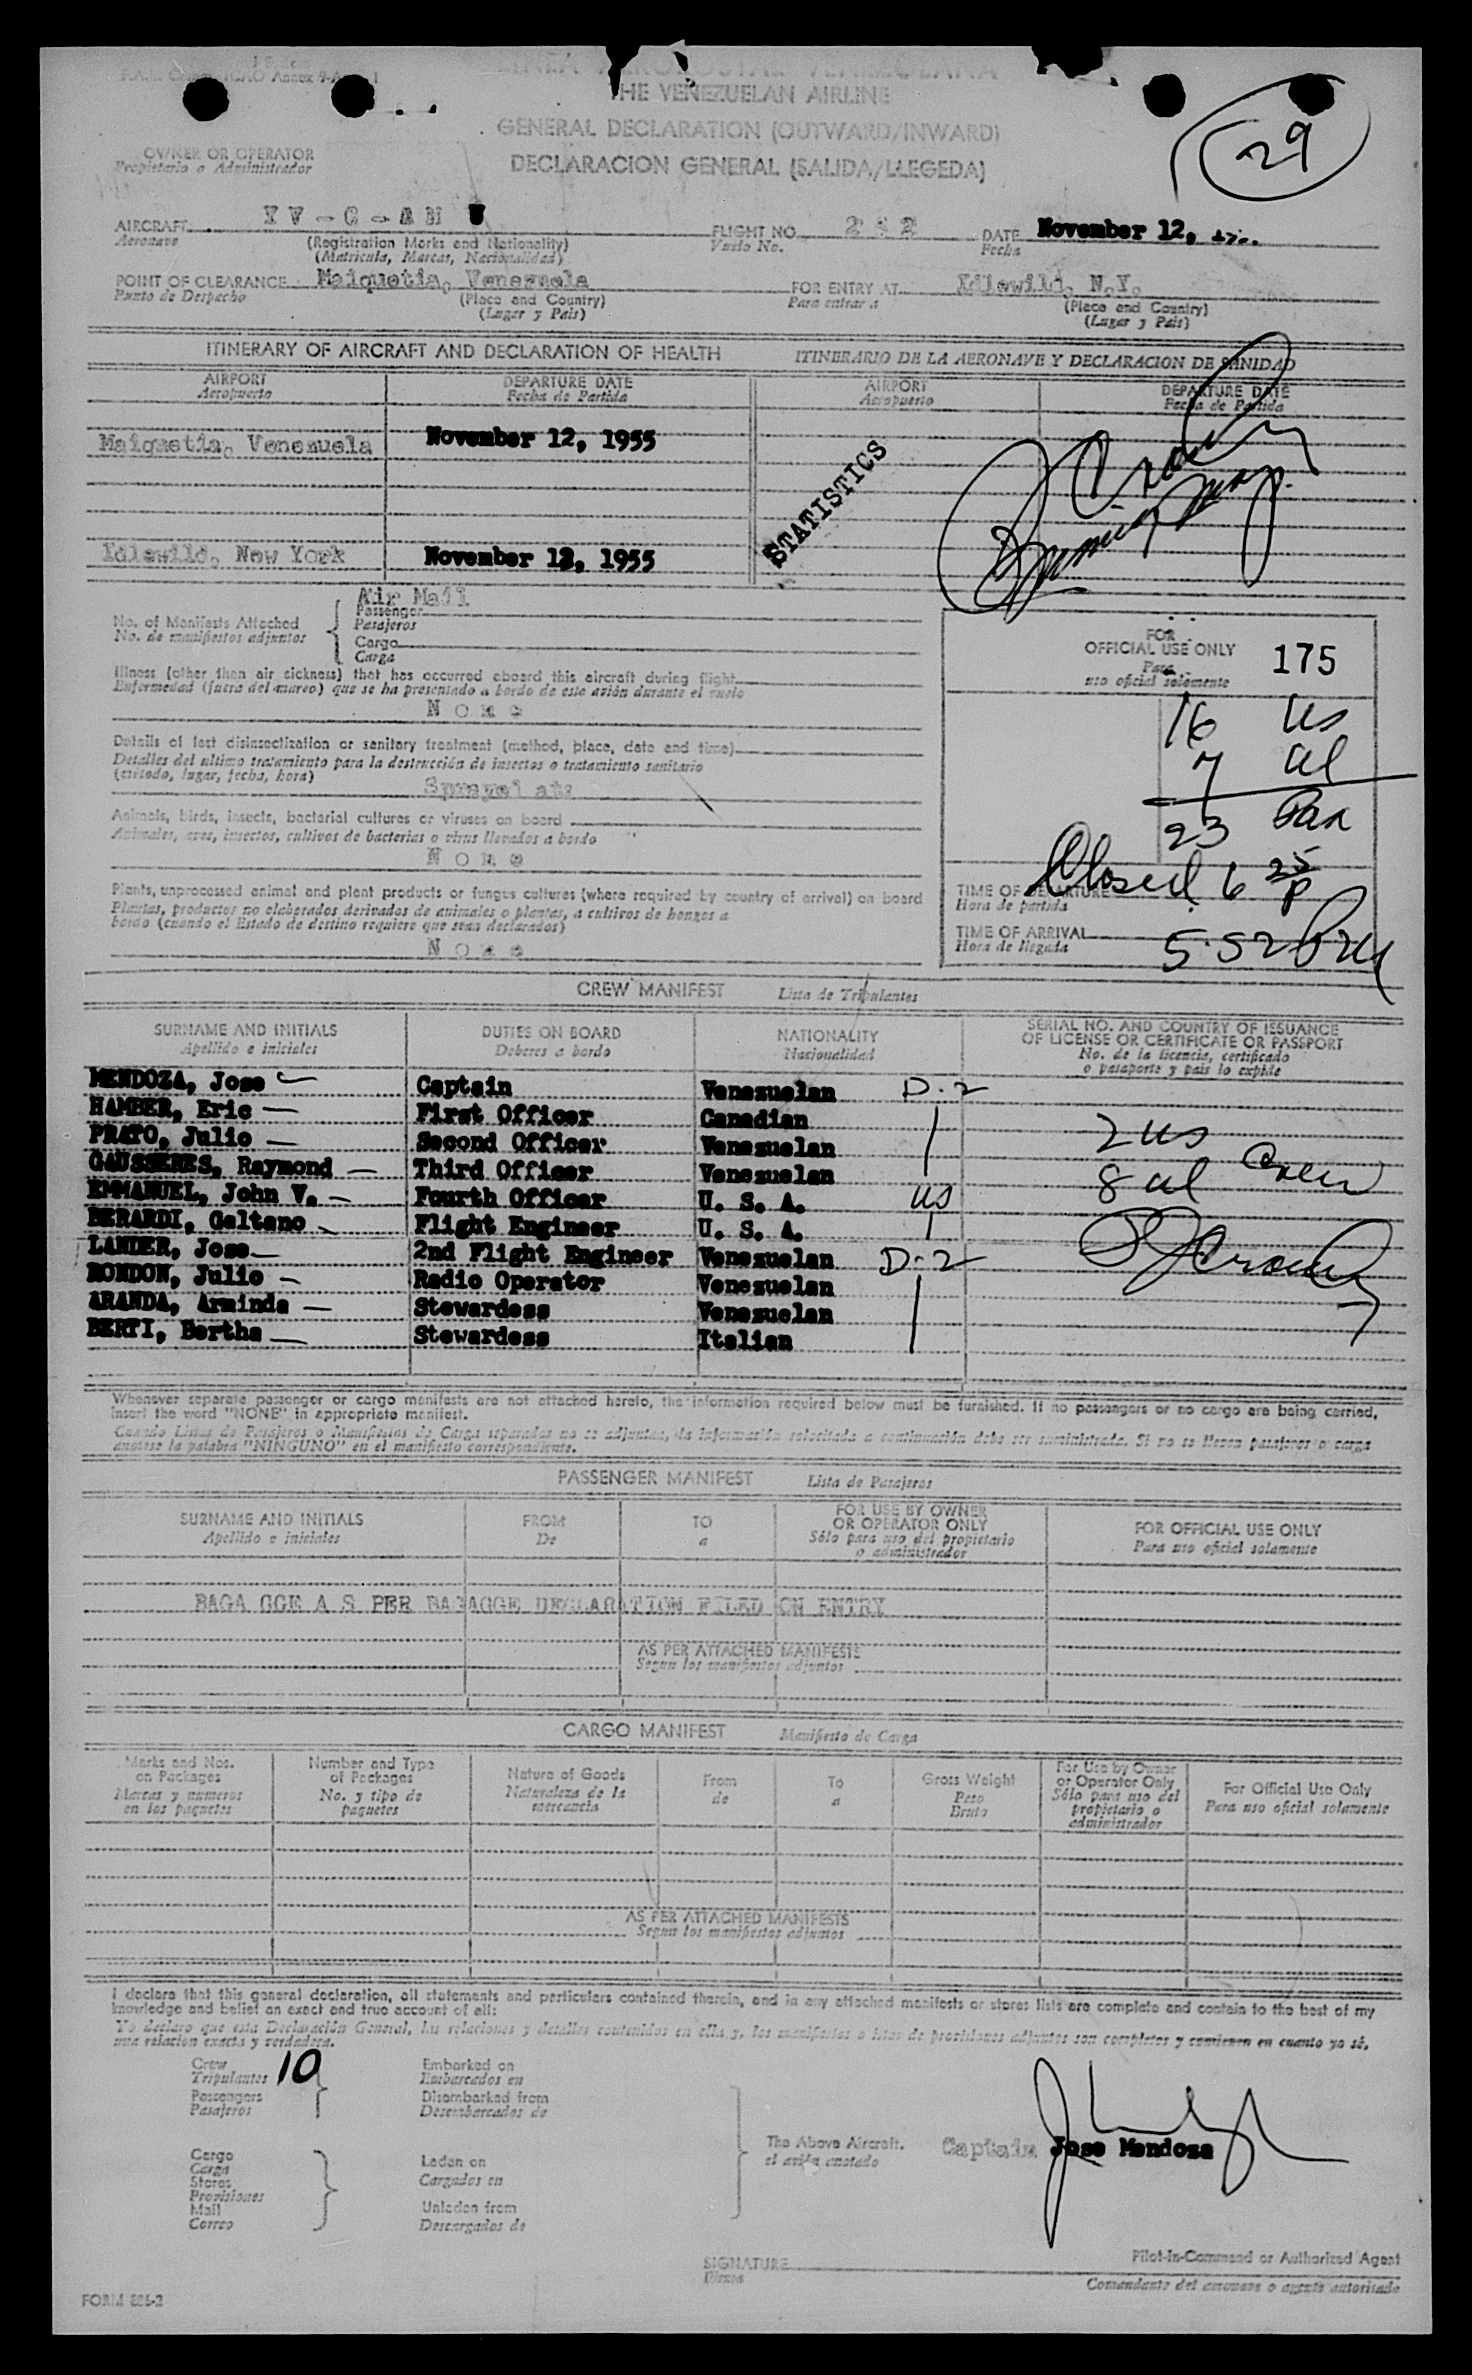 THE VENEZUELAN AIRLINE
GENERAL DECLARATION (OUTWARD/INWARD)
DECLARACION GENERAL (SALIDA/LLEGEDA)
29
OWNER OR OPERATOR
Propietario o Administrador
AIRCRAFT YV-C-AM
Aeronave
(Registration Marks and Nationality)
(Matricula, Marcas, Nacionalidad)
FLIGHT NO. 2 2
Vuelo No.
DATE November 12,
Fecha
POINT OF CLEARANCE Maiquetia, Venezuela
Punto de Despacho
(Place and Country)
(Lugar y Pais)
FOR ENTRY AT Idlewild, N.Y.
Para entrar a
(Place and Country)
(Lugar y Pais)
ITINERARY OF AIRCRAFT AND DECLARATION OF HEALTH ITINERARIO DE LA AERONAVE Y DECLARACION DE SANIDAD
AIRPORT DEPARTURE DATE AIRPORT DEPARTURE DATE
Aeropuerto Fecha de Partida Aeropuerto Fecha de Partida
Maiquetia, Venezuela November 12, 1955
STATISTICS
Idlewild, New York November 12, 1955
Air Mail
No. of Manifests Attached
No. de manifiestos adjuntos
Passenger
Pasajeros
Cargo
Carga
Illness (other than air sickness) that has occurred aboard this aircraft during flight
Enfermedad (fuera del mareo) que se ha presentado a bordo de este avión durante el vuelo
None
Details of last disinsectization or sanitary treatment (method, place, date and time)
Detalles del ultimo tratamiento para la destrucción de insectos o tratamiento sanitario
(método, lugar, fecha, hora)
Sprayed at:
Animals, birds, insects, bacterial cultures or viruses on board
Animales, aves, insectos, cultivos de bacterias o virus llevados a bordo
None
Plants, unprocessed animal and plant products or fungus cultures (where required by country of arrival) on board
Plantas, productos no elaborados derivados de animales o plantas, a cultivos de hongos a
bordo (cuando el Estado de destino requiere que sean declarados)
None
FOR
OFFICIAL USE ONLY 175
Para
uso oficial solamente
16 US
7 al
23 Pax
Closed 6 25 P
TIME OF DEPARTURE
Hora de partida
TIME OF ARRIVAL 5:52
Hora de llegada
CREW MANIFEST Lista de Tripulantes
SURNAME AND INITIALS DUTIES ON BOARD NATIONALITY SERIAL NO. AND COUNTRY OF ISSUANCE
OF LICENSE OR CERTIFICATE OR PASSPORT
Apellido e iniciales Deberes a bordo Nacionalidad No. de la licencia, certificado
o pasaporte y pais lo expide
MENDOZA, Jose Captain Venezuelan D-2
HAMBER, Eric First Officer Canadian
PRATO, Julio Second Officer Venezuelan 2 US
GAUSSERES, Raymond Third Officer Venezuelan 8 al Crew
EMMANUEL, John V. Fourth Officer U. S. A. US
BERARDI, Galtano Flight Engineer U. S. A.
LANDER, Jose 2nd Flight Engineer Venezuelan D-2
RONDON, Julio Radio Operator Venezuelan
ARANDA, Arminda Stewardess Venezuelan
BERTI, Bertha Stewardess Italian
Whenever separate passenger or cargo manifests are not attached hereto, the information required below must be furnished. If no passengers or no cargo are being carried,
insert the word "NONE" in appropriate manifest.
Cuando Listas de Pasajeros o Manifiestos de Carga separados no se adjuntan, la información solicitada a continuación debe ser suministrada. Si no se llevan pasajeros o carga
anótese la palabra "NINGUNO" en el manifiesto correspondiente.
PASSENGER MANIFEST Lista de Pasajeros
SURNAME AND INITIALS FROM TO FOR USE BY OWNER
OR OPERATOR ONLY FOR OFFICIAL USE ONLY
Apellido e iniciales De a Sólo para uso del propietario
o administrador Para uso oficial solamente
BAGA GGE A S PER BAGAGGE DECLARATION FILED ON ENTRY
AS PER ATTACHED MANIFESTS
Segun los manifiestos adjuntos
CARGO MANIFEST Manifiesto de Carga
Marks and Nos.
on Packages
Marcas y numeros
en los paquetes
Number and Type
of Packages
No. y tipo de
paquetes
Nature of Goods
Naturaleza de la
mercancia
From
de
To
a
Gross Weight
Peso
Bruto
For Use by Owner
or Operator Only
Sólo para uso del
propietario o
administrador
For Official Use Only
Para uso oficial solamente
AS PER ATTACHED MANIFESTS
Segun los manifiestos adjuntos
I declare that this general declaration, all statements and particulars contained therein, and in any attached manifests or stores lists are complete and contain to the best of my
knowledge and belief an exact and true account of all:
Yo declaro que esta Declaración General, las relaciones y detalles contenidos en ella y, los manifiestos o listas de provisiones adjuntos son completos y contienen en cuanto yo sé,
una relacion exacta y verdadera.
Crew 10
Tripulantes
Passengers
Pasajeros
Embarked on
Embarcados en
Disembarked from
Desembarcados de
Cargo
Carga
Stores
Provisiones
Mail
Correo
Laden on
Cargados en
Unladen from
Descargados de
The Above Aircraft.
el avión anotado
Captain Jose Mendoza
SIGNATURE
Firma
Pilot-in-Command or Authorized Agent
Comandante del aeronave o agente autorisado
FORM